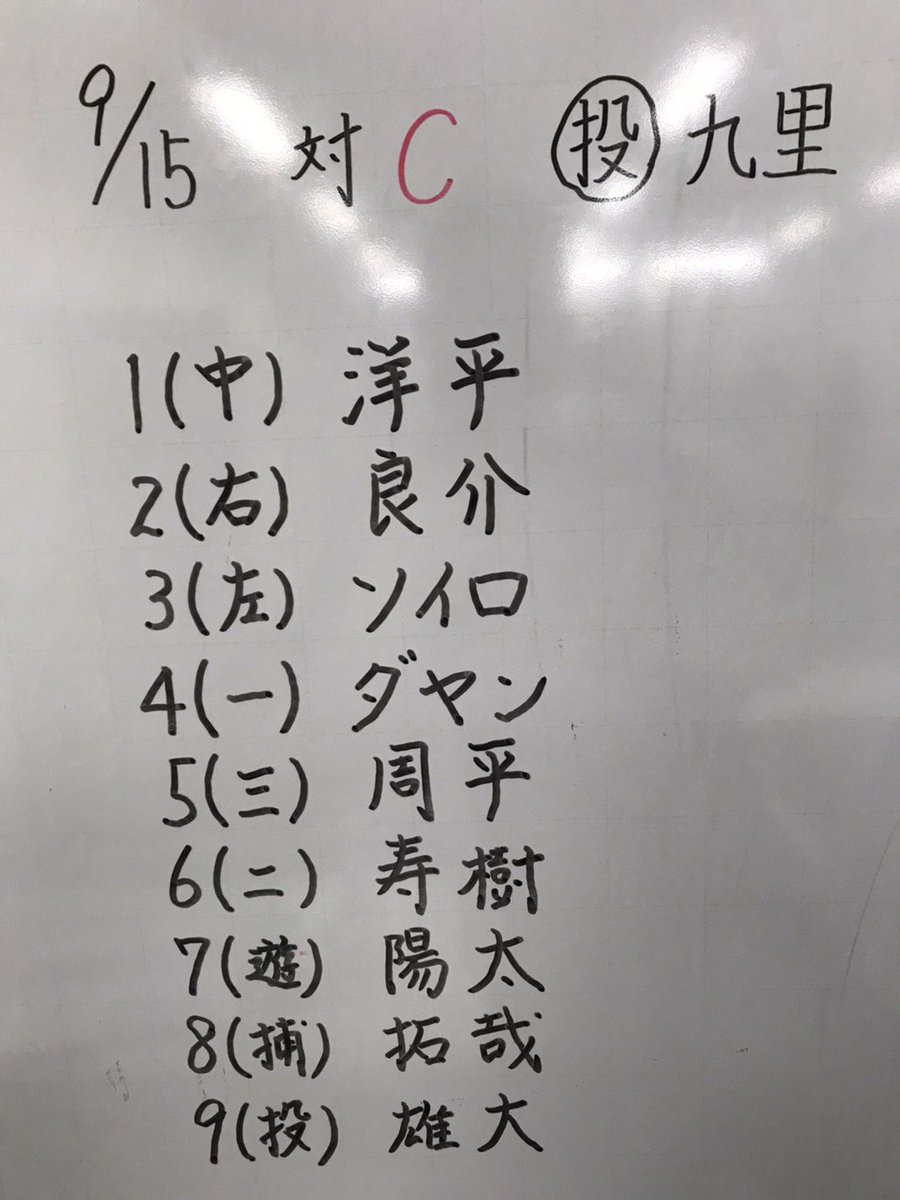 9/15 対 C 投 九里
1(中) 洋平
2(右) 良介
3(左) ソイロ
4(一) ダヤン
5(三) 周平
6(二) 寿樹
7(遊) 陽太
8(捕) 拓哉
9(投) 雄大